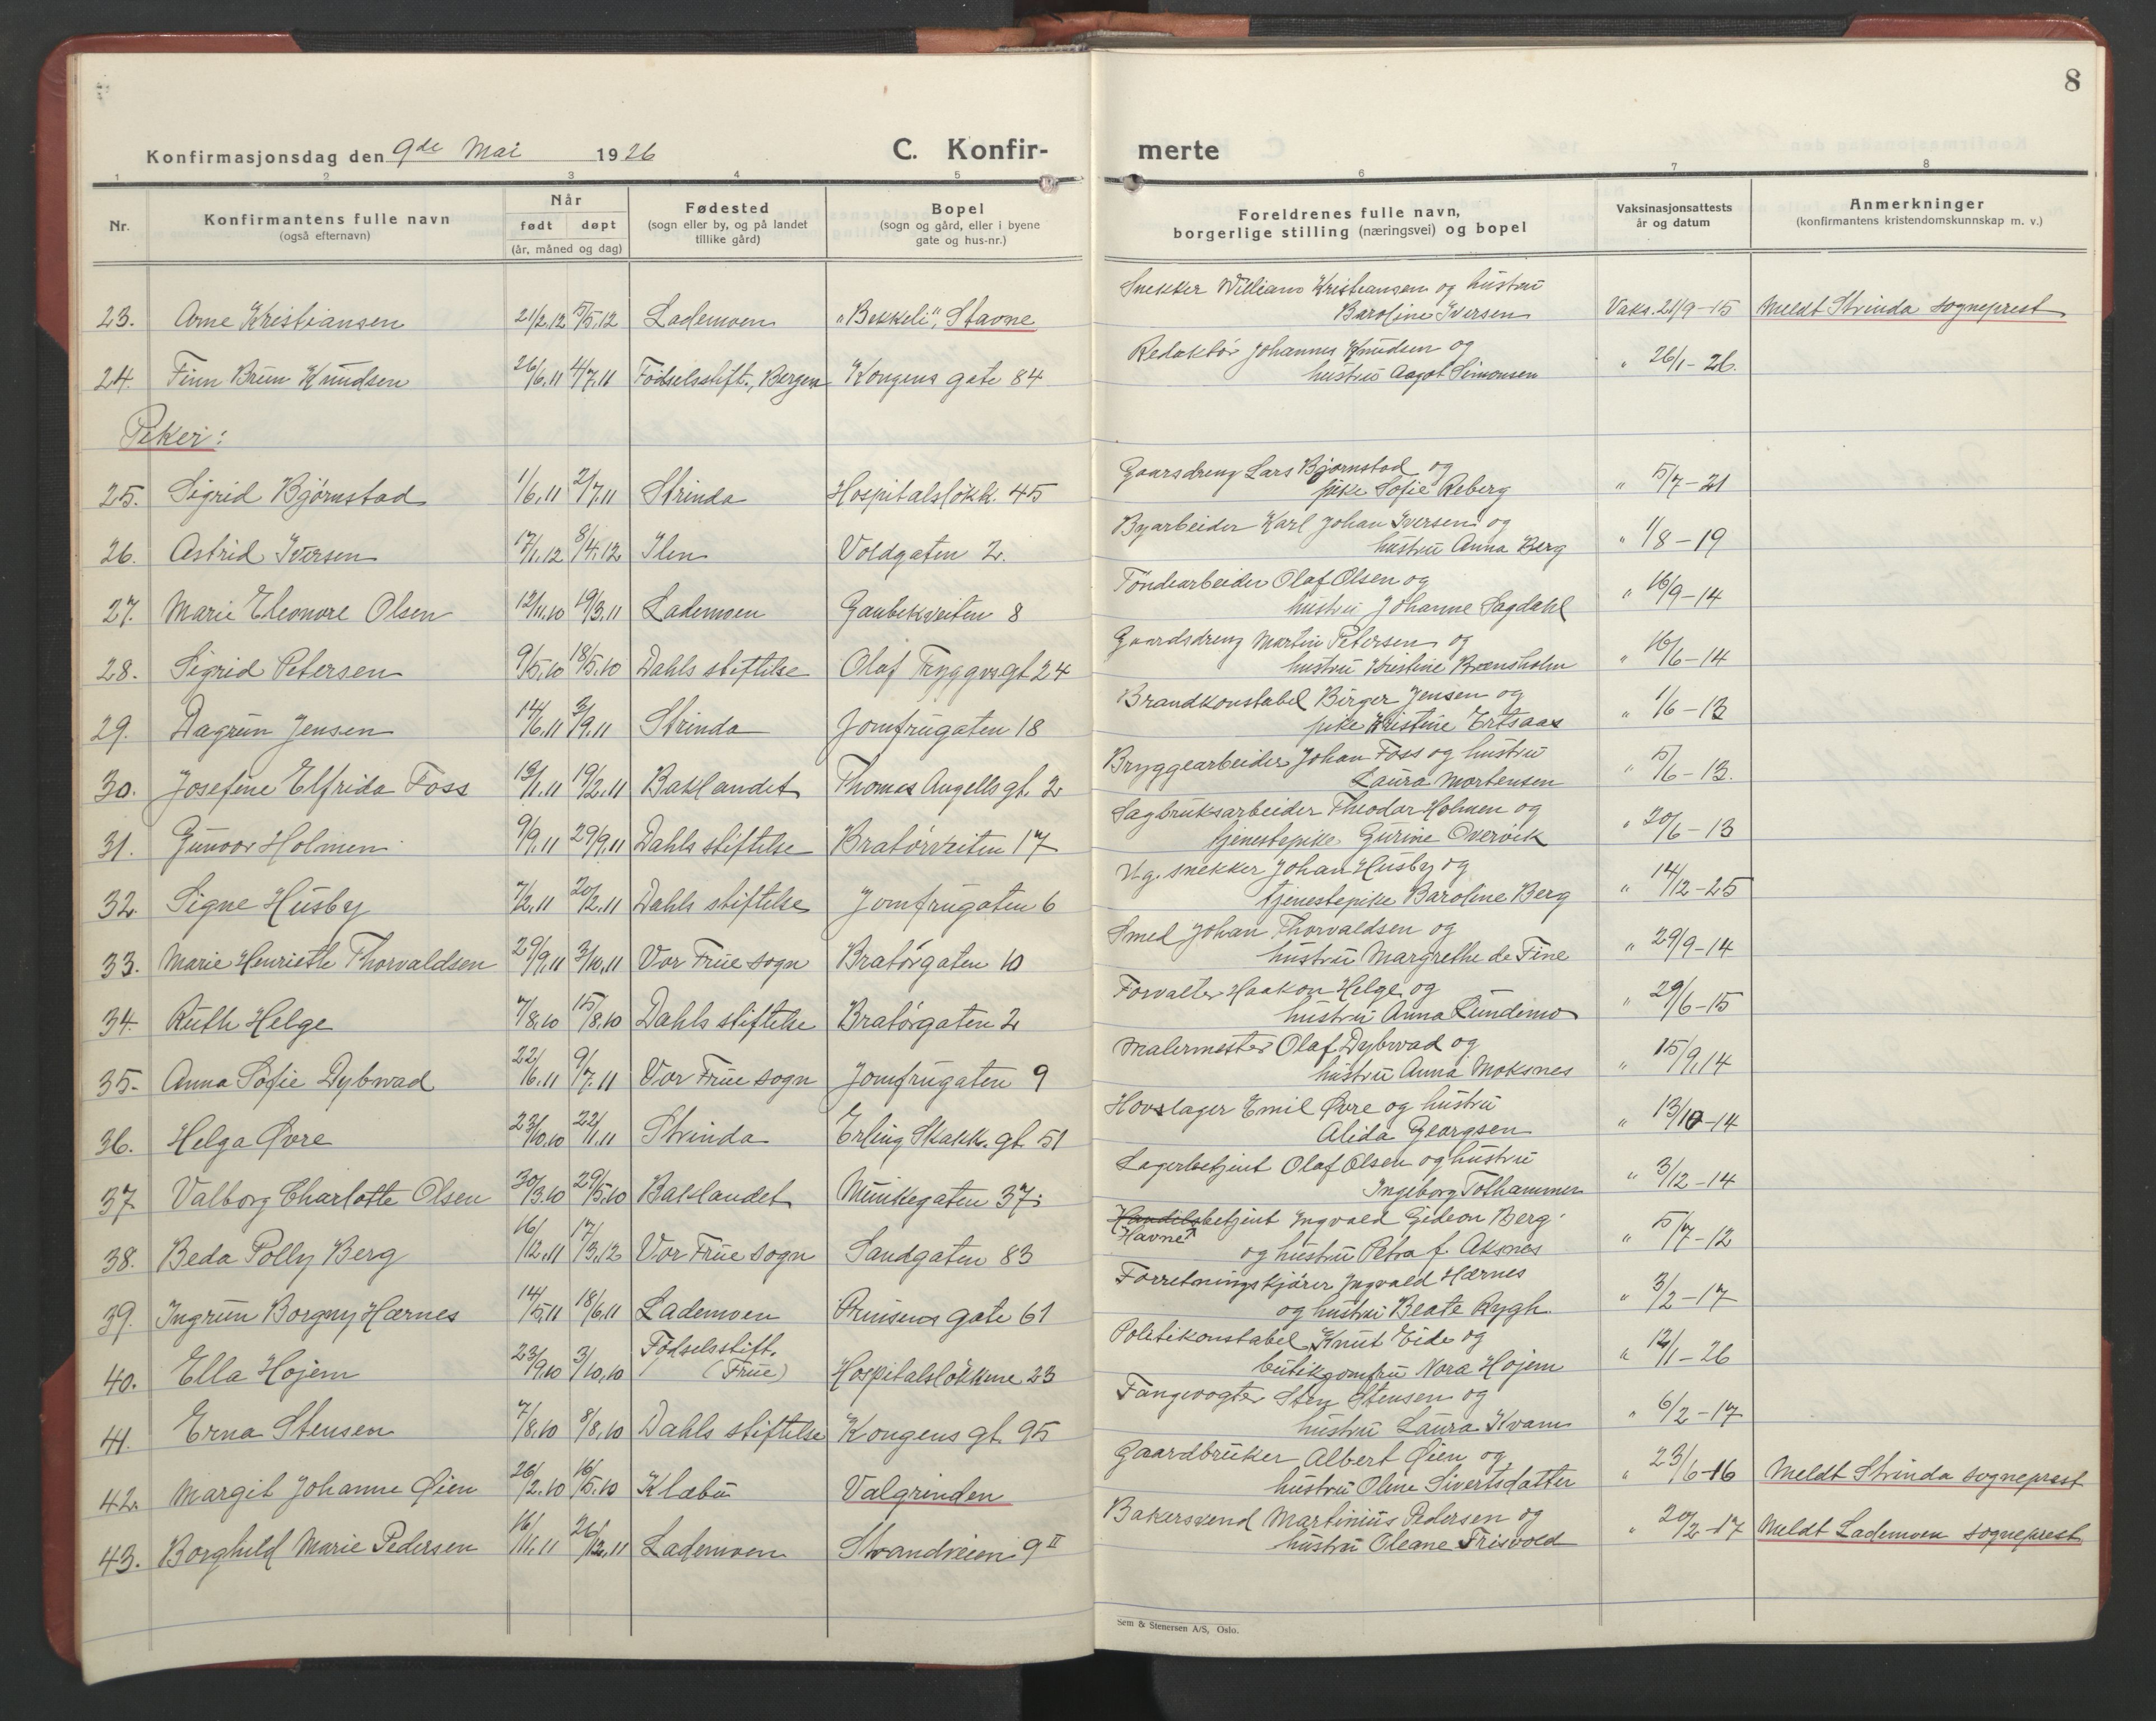 8
Konfirmasjonsdag den 9de Mai 1926 C. Konfir- merte
1 2 3 4 5 6 7 8
Nr. Konfirmantens fulle navn (også efternavn) Når født døpt (år, måned og dag) Fødested (sogn eller by, og på landet tillike gård) Bopel (sogn og gård, eller i byene gate og hus-nr.) Foreldrenes fulle navn, borgerlige stilling (næringsvei) og bopel Vaksinasjonsattests år og datum Anmerkninger (konfirmantens kristendomskunnskap m. v.)
Snekker William Kristiansen og hustru
23. Arne Kristiansen 21/2.12 5/5.12 Lademoen "Bekkeli", Stavne Baroline Iversen Vaks. 21/9-15 Meldt Strinda sogneprest
Redaktör Johannes Knudsen og
24. Finn Brun Knudsen 26/6.11 4/7.11 Födselsstift., Bergen Kongens gate 84 hustru Aagot Simonsen " 26/1-26.
Piker:
Gaarsdreng Lars Bjørnstad og
25. Sigrid Bjørnstad 1/6.11 2/7.11 Strinda Hospitalsløkk. 45 pike Sofie Reberg " 5/7-21
Byarbeider Karl Johan Iversen og
26. Astrid Iversen 17/1.12 8/4.12 Ilen Voldgaten 2. hustru Anna Berg " 1/8-19
Töndearbeider Olaf Olsen og
27. Marie Eleonore Olsen 12/11.10 19/3.11 Lademoen Gaubekveiten 8 hustru Johanne Sagdahl " 16/9-14
Gaardsdreng Martin Petersen og
28. Sigrid Petersen 9/5.10 18/5.10 Dahls stiftelse Olaf Tryggvs.gt 24 hustru Kristine Brænsholm " 16/6-14
Brandkonstabel Birger Jensen og
29. Dagrun Jensen 14/6.11 3/9.11 Strinda Jomfrugaten 18 pike Kristine Ertsaas " 1/6-13
Bryggearbeider Johan Foss og hustru
30. Josefine Elfrida Foss 13/1.11 19/2.11 Baklandet Thomas Angells gt. 2 Laura Mortensen " 5/6-13.
Sagbruksarbeider Theodor Holmen og
31. Gunvor Holmen 9/9.11 29/9.11 Dahls stiftelse Bratørveiten 17 tjenestepike Gurine Overvik " 20/6-13
Ug. snekker Johan Husby og
32. Signe Husby 7/2.11 20/2.11 Dahls stiftelse Jomfrugaten 6 tjenestepike Baroline Berg " 14/12-25
Smed Johan Thorvaldsen og
33. Marie Henriette Thorvaldsen 29/9.11 3/10.11 Vor Frue sogn Bratørgaten 10 hustru Margrethe de Fine " 29/9-14
Forvalter Haakon Helge og
34. Ruth Helge 7/8.10 15/8.10 Dahls stiftelse Bratørgaten 2 hustru Anna Lundemo " 29/6-15
Malermester Olaf Dybwad og
35. Anna Sofie Dybwad 22/6.11 9/7.11 Vor Frue sogn Jomfrugaten 9 hustru Anna Moksnes " 15/9.14
Hovslager Emil Øvre og hustru
36. Helga Øvre 23/10.10 22/1.11 Strinda Erling Skakk. gt. 51 Alida Georgsen " 13/10-14
Lagerbetjent Olaf Olsen og hustru
37 Valborg Charlotte Olsen 30/3.10 29/5.10 Baklandet Munkegaten 37 Ingeborg Tothammer " 3/12-14
Handilsbetjent Ingvald Gideon Berg
Havne
38. Beda Polly Berg 16/12.11 17/3.12 Vor Frue sogn Sandgaten 83 og hustru Petra f. Aksnes " 5/7-12
Forretningskjører Ingvald Hærnes
39. Ingrun Borgny Hærnes 14/5.11 18/6.11 Lademoen Prinsens gate 61 og hustru Beate Rygh. " 3/2-17
Politikonstabel Knut Eide og
40. Ella Hojem 23/9.10 3/10.10 Födselsstift. (Frue) Hospitalsløkkene 23 butikjomfru Nora Hojem " 12/1-26
Fangevogter Sten Stensen og
41. Erna Stensen 7/8.10 8/8.10 Dahls stiftelse Kongens gt. 95 hustru Laura Kvam " 6/2-17
Gaardbruker Albert Øien og
42. Margit Johanne Øien 26/2.10 16/5.10 Klæbu Valgrinden hustru Oline Sivertsdatter " 23/6-16 Meldt Strinda sogneprest
Bakersvend Martinius Pedersen og
43. Borghild Marie Pedersen 16/11.11 26/12.11 Lademoen Strandveien 9 II hustru Oleane Frisvold " 20/2-17 Meldt Lademoen sogneprest
Sem & Stenersen A/S, Oslo.